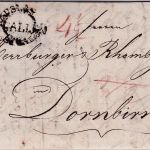 ST. GALLEN
4
Herren
Herrburger & Rhomberg
Dornbirn